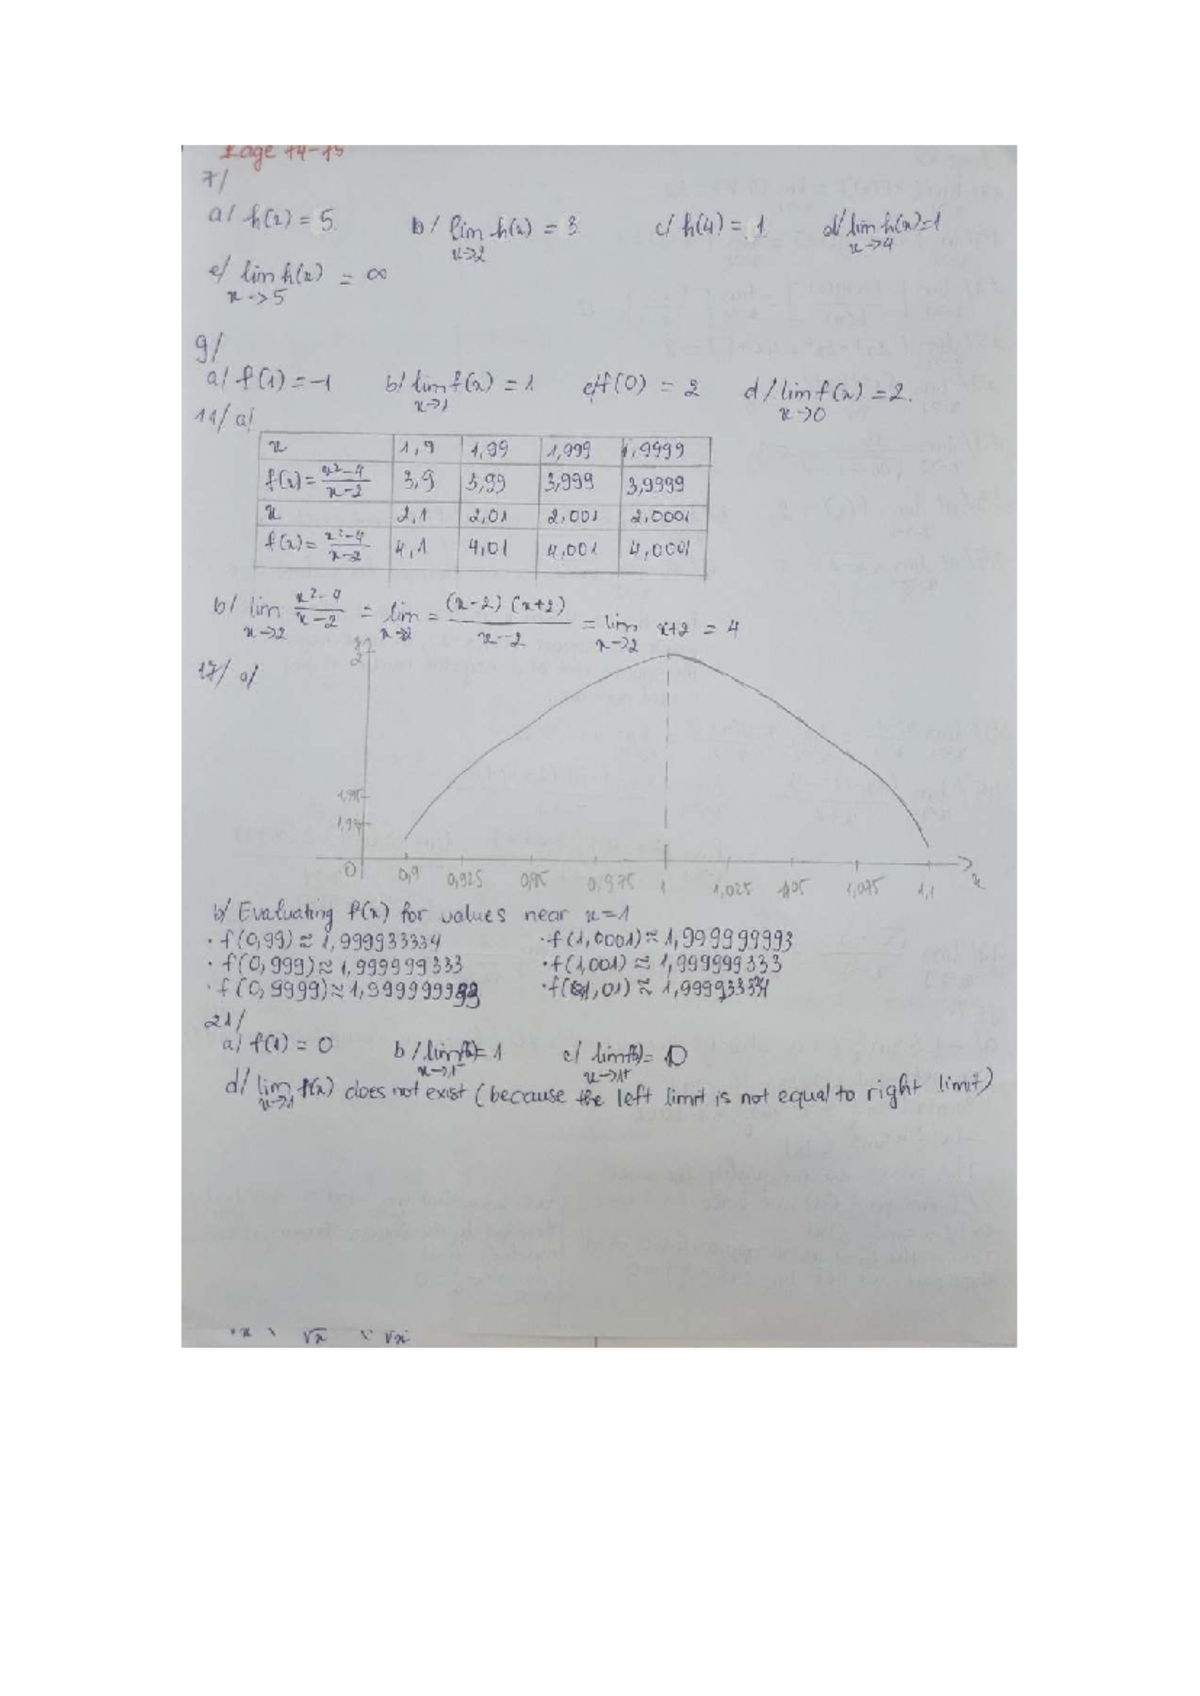 Page 74-75
7/
a/ h(2) = 5 b/ lim h(x) = 3 c/ h(4) = 1 d/ lim h(x) = 1
x->2 x->4
e/ lim h(x) = ∞
x->5
9/
a/ f(1) = -1 b/ lim f(x) = 1 c/ f(0) = 2 d/ lim f(x) = 2.
x->1 x->0
11/ a/
x 1,9 1,99 1,999 1,9999
f(x) = x²-4 / x-2 3,9 3,99 3,999 3,9999
x 2,1 2,01 2,001 2,0001
f(x) = x²-4 / x-2 4,1 4,01 4,001 4,0001
b/ lim x²-4 / x-2 = lim = (x-2)(x+2) / x-2 = lim x+2 = 4
x->2 x->2 x->2
2
17/ a/
0 0,9 0,925 0,95 0,975 1 1,025 1,05 1,075 1,1 x
b/ Evaluating f(x) for values near x=1
· f(0,99) ≈ 1,999933334 · f(1,0001) ≈ 1,999999993
· f(0,999) ≈ 1,999999333 · f(1,001) ≈ 1,999999333
· f(0,9999) ≈ 1,999999993 · f(1,01) ≈ 1,999933334
21/
a/ f(1) = 0 b/ lim f(x) = 1 c/ lim f(x) = 0
x->1⁻ x->1⁺
d/ lim f(x) does not exist (because the left limit is not equal to right limit)
x->1
x √x √x